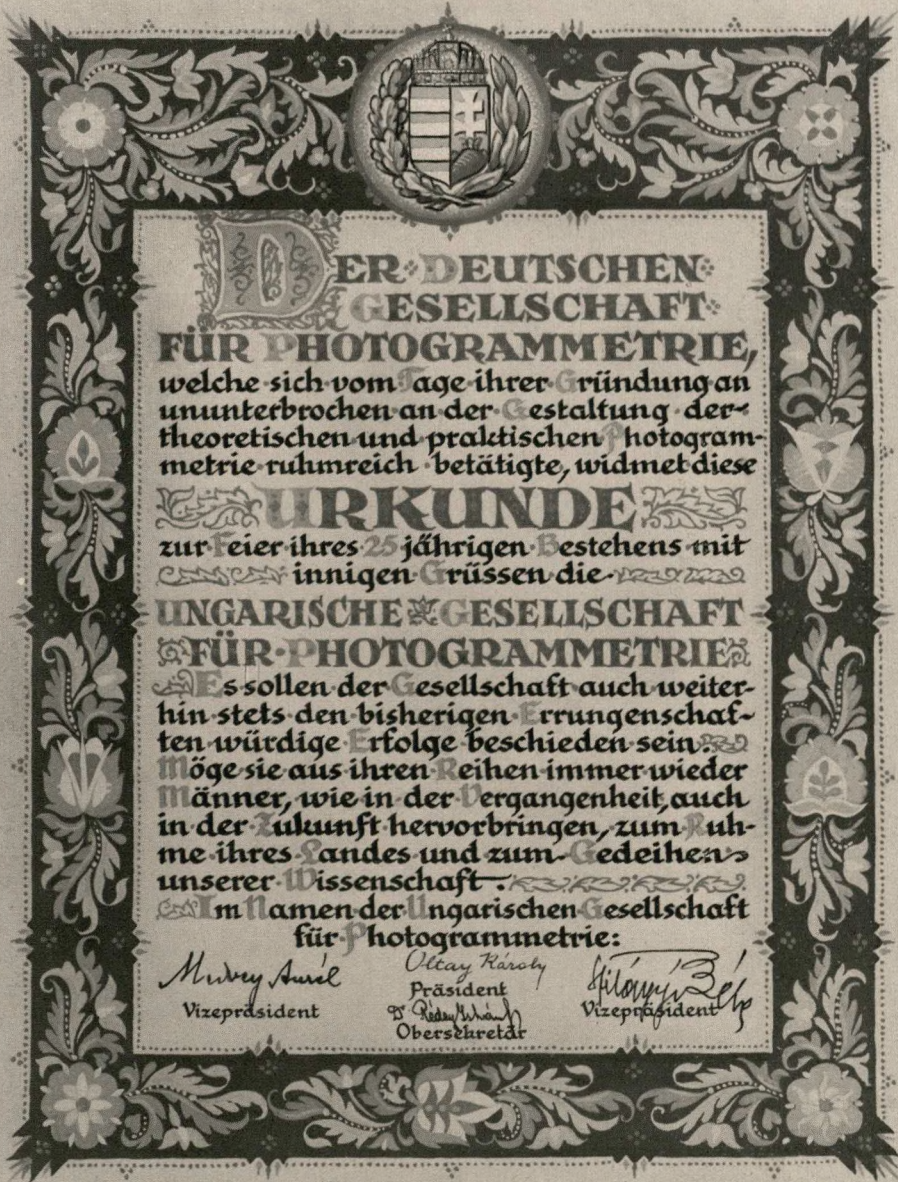 DER DEUTSCHEN
GESELLSCHAFT
FÜR PHOTOGRAMMETRIE,
welche sich vom Tage ihrer Gründung an
ununterbrochen an der Gestaltung der
theoretischen und praktischen Photogram-
metrie ruhmreich betätigte, widmet diese
URKUNDE
zur Feier ihres 25 jährigen Bestehens mit
innigen Grüssen die
UNGARISCHE GESELLSCHAFT
FÜR PHOTOGRAMMETRIE
Es sollen der Gesellschaft auch weiter-
hin stets den bisherigen Errungenschaf-
ten würdige Erfolge beschieden sein.
Möge sie aus ihren Reihen immer wieder
Männer, wie in der Vergangenheit, auch
in der Zukunft hervorbringen, zum Ruh-
me ihres Landes und zum Gedeihen
unserer Wissenschaft.
Im Namen der Ungarischen Gesellschaft
für Photogrammetrie:
Aurél
Vizepräsident
Oltay Károly
Präsident
Dr
Obersekretär
Béla
Vizepräsident